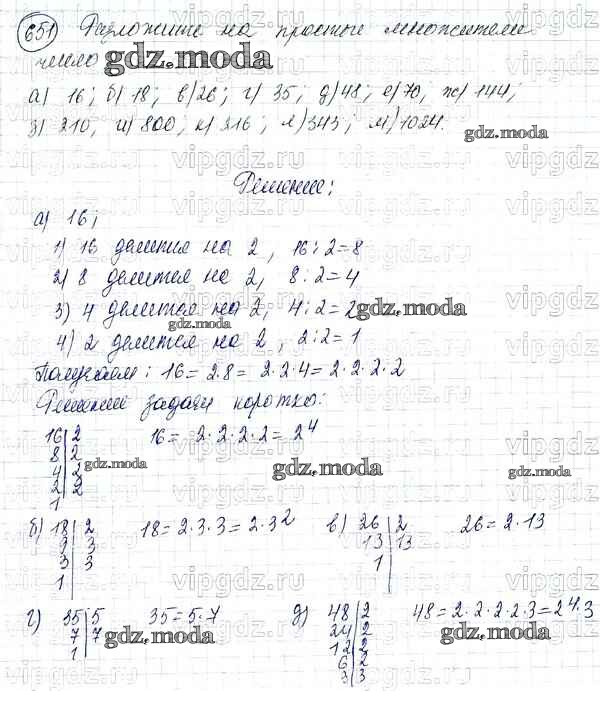 651 Разложите на простые множители
число gdz.moda
а) 16; б) 18; в) 26; г) 35; д) 48; е) 70, ж) 144;
з) 210, и) 800; к) 216; л) 343; м) 1024.
gdz.moda
Решение:
а) 16;
1) 16 делится на 2, 16:2=8
2) 8 делится на 2, 8:2=4
3) 4 делится на 2, 4:2=2 gdz.moda
gdz.moda
4) 2 делится на 2, 2:2=1
Получаем: 16=2·8=2·2·4=2·2·2·2
Решение задачи коротко:
16|2 16=2·2·2·2=2⁴
8|2
4|2 gdz.moda gdz.moda gdz.moda
2|2
1
б) 18|2 18=2·3·3=2·3² в) 26|2 26=2·13
9|3 13|13
3|3 1
1
г) 35|5 35=5·7 д) 48|2 48=2·2·2·2·3=2⁴·3
7|7 gdz.moda 24|2 gdz.moda
1 12|2
6|2
3|3
vipgdz.ru